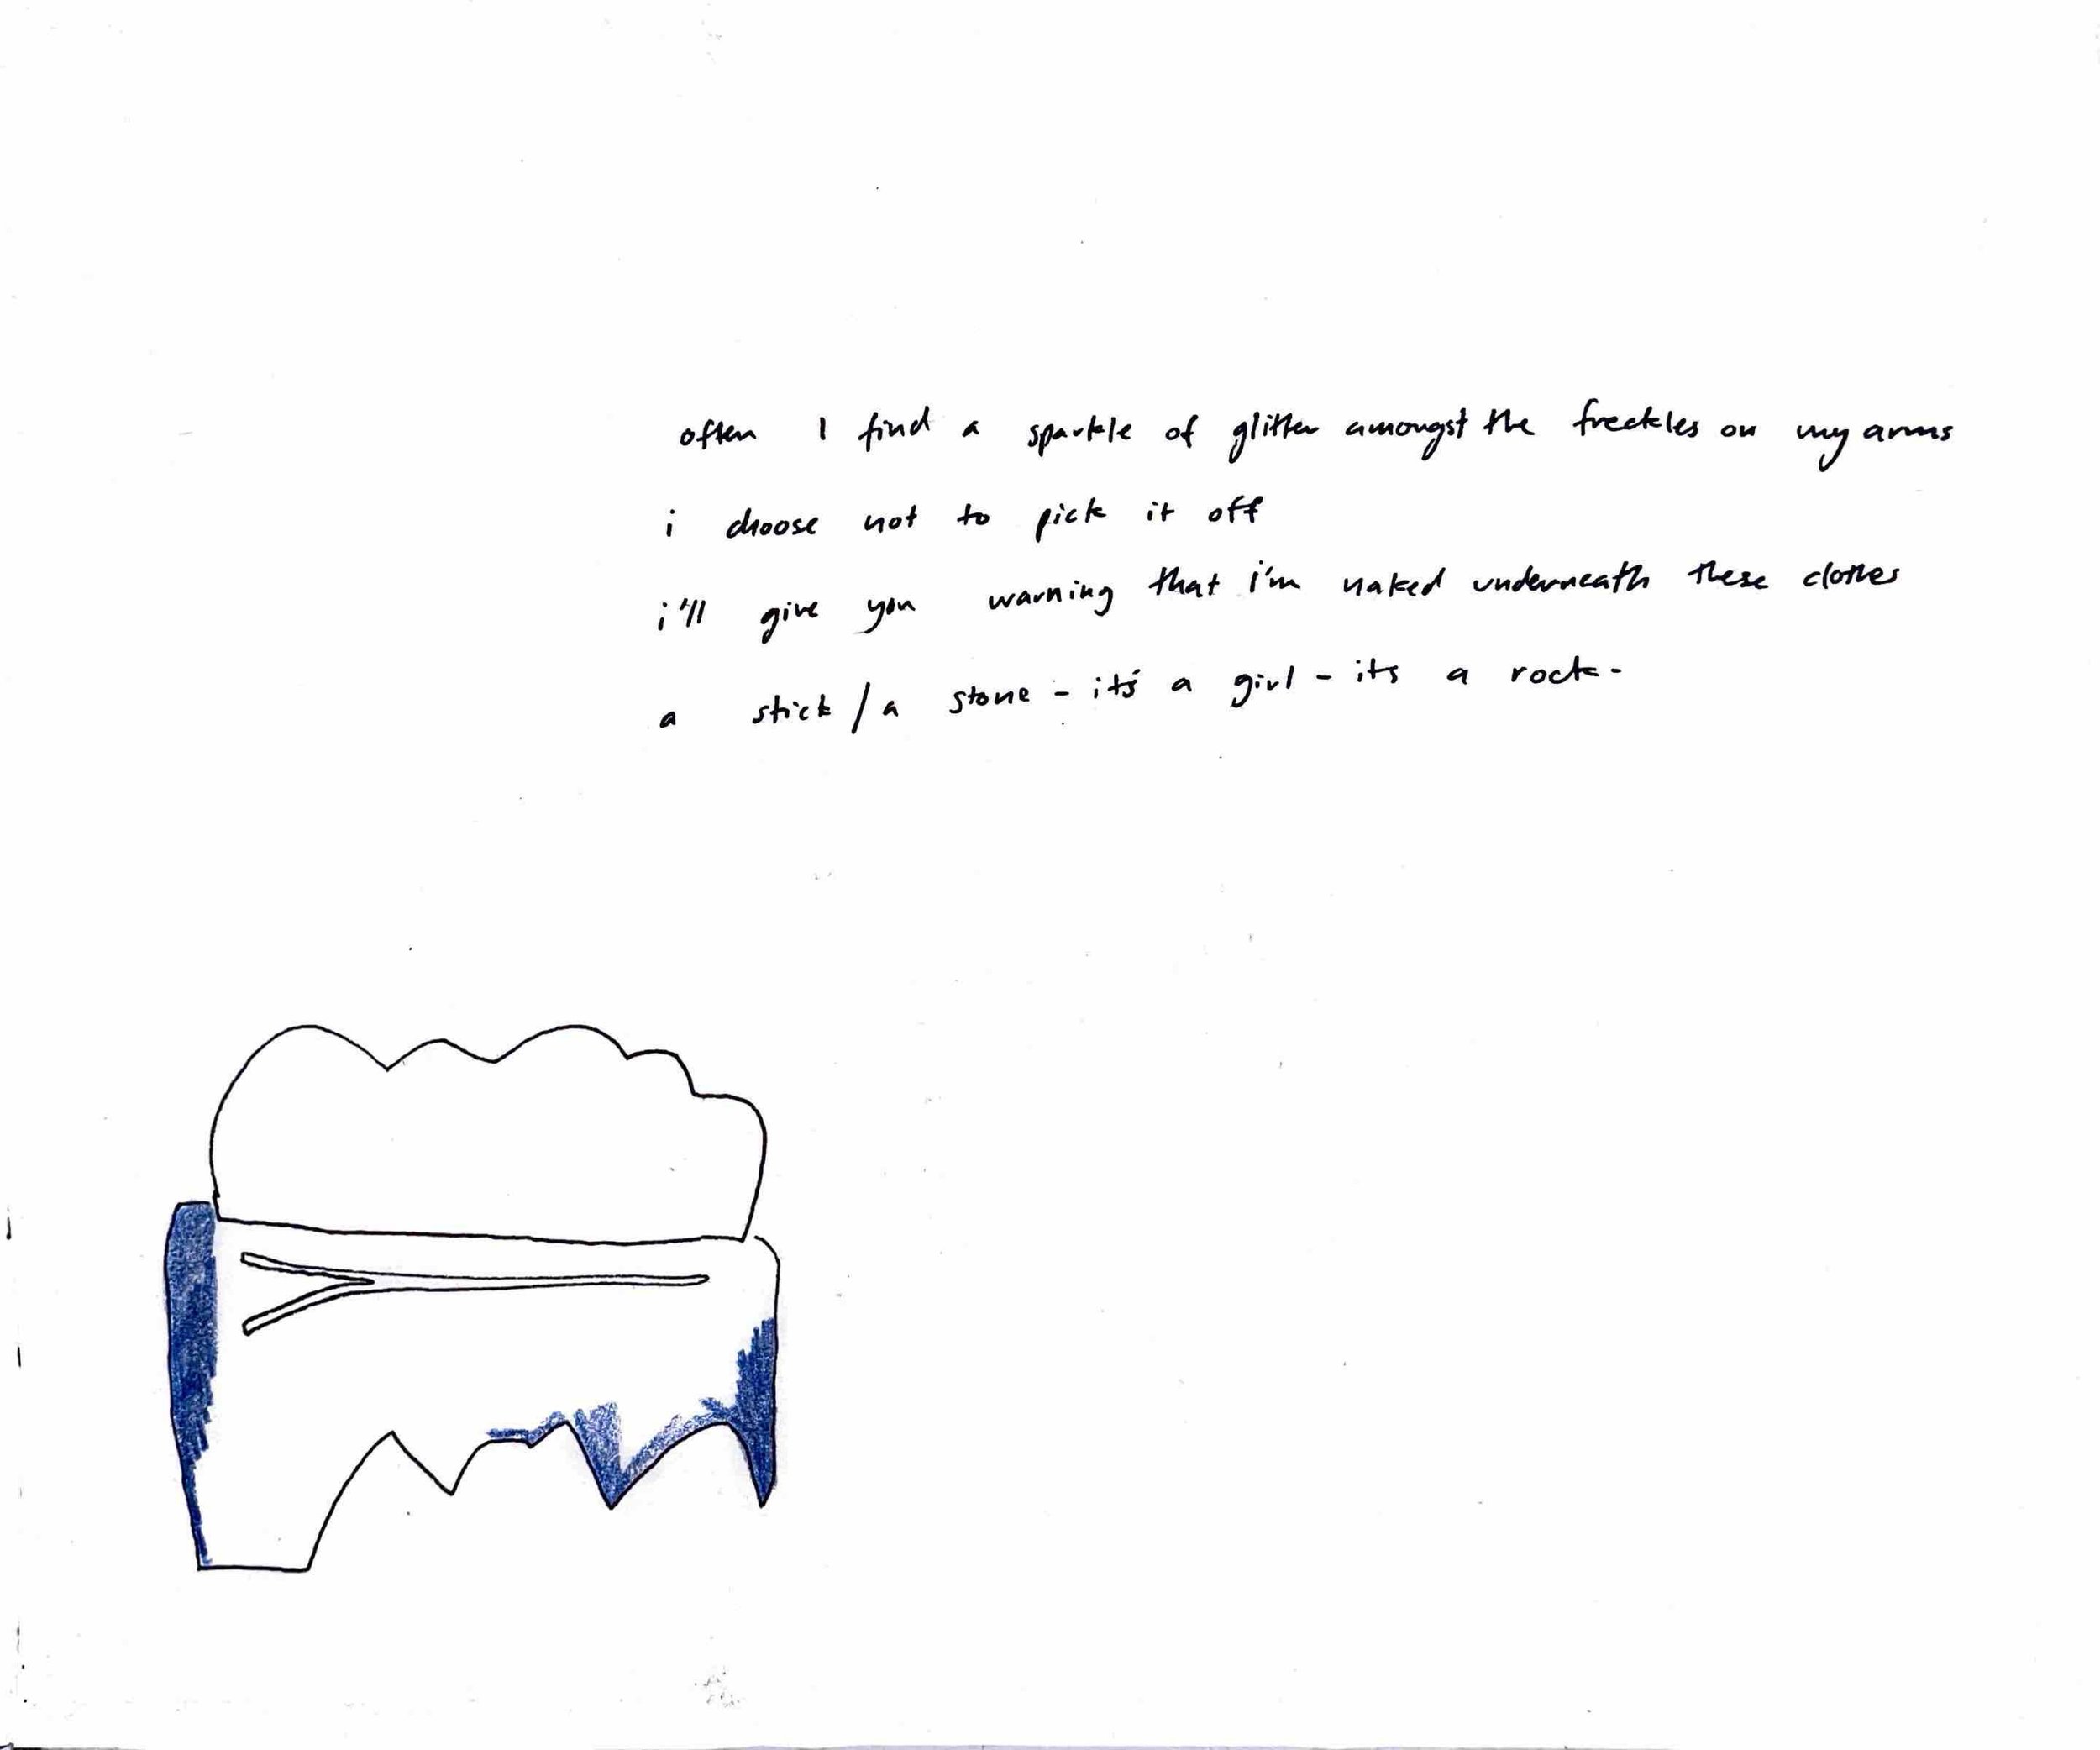 often I find a sparkle of glitter amongst the freckles on my arms
i choose not to pick it off
i'll give you warning that i'm naked underneath these clothes
a stick / a stone - it's a girl - its a rock -